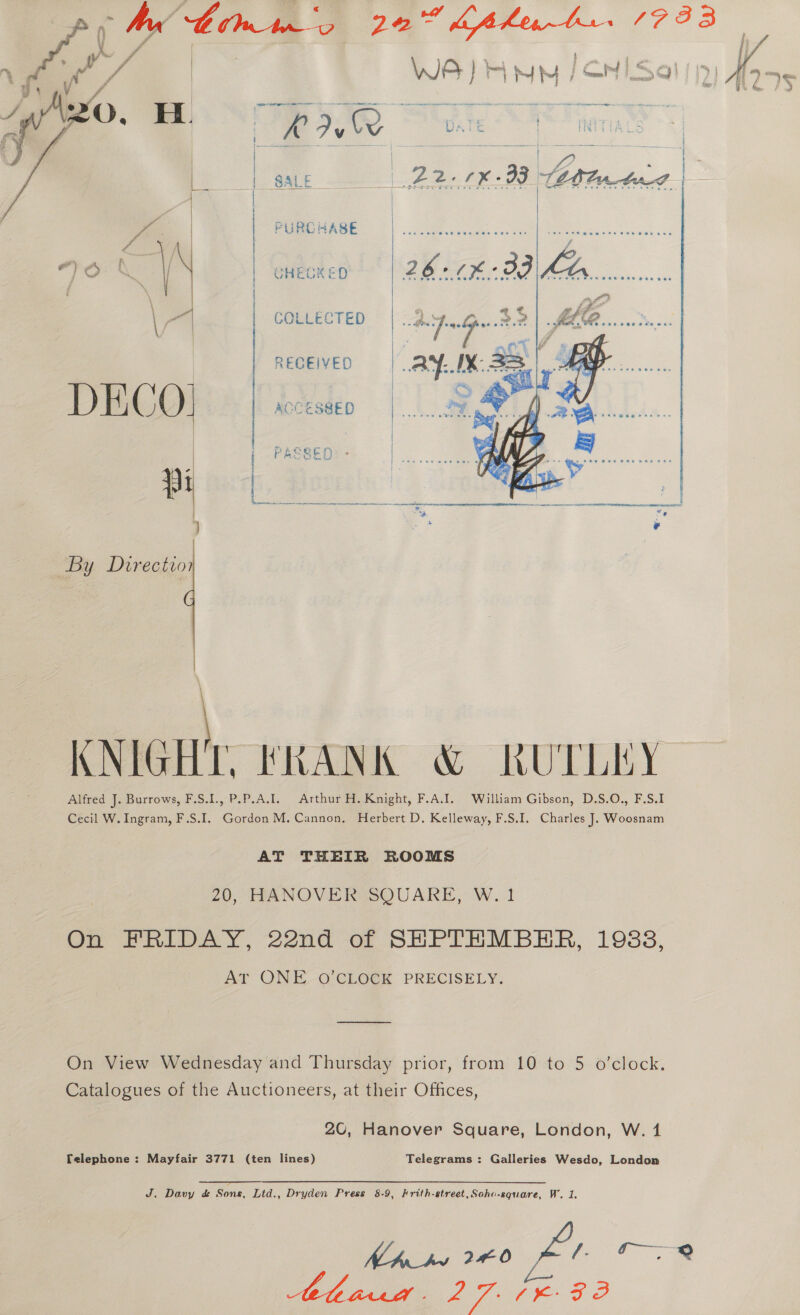 22nd September 1933
20. H.
DATE INITIALS
SALE 22.IX.33
PURCHASE
CHECKED 26.IX.33
COLLECTED
RECEIVED 27.IX.33
DECO
ACCESSED
PASSED
Pi
By Direction
G
KNIGHT, FRANK & RUTLEY
Alfred J. Burrows, F.S.I., P.P.A.I. Arthur H. Knight, F.A.I. William Gibson, D.S.O., F.S.I
Cecil W. Ingram, F.S.I. Gordon M. Cannon. Herbert D. Kelleway, F.S.I. Charles J. Woosnam
AT THEIR ROOMS
20, HANOVER SQUARE, W. 1
On FRIDAY, 22nd of SEPTEMBER, 1933,
AT ONE O'CLOCK PRECISELY.
On View Wednesday and Thursday prior, from 10 to 5 o'clock.
Catalogues of the Auctioneers, at their Offices,
20, Hanover Square, London, W. 1
Telephone : Mayfair 3771 (ten lines) Telegrams : Galleries Wesdo, London
J. Davy & Sons, Ltd., Dryden Press 8-9, Frith-street, Soho-square, W. 1.
240
27.IX.33